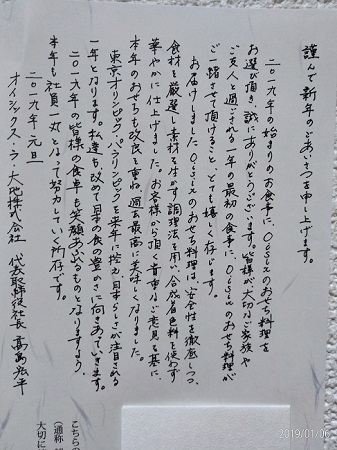 謹んで新年のごあいさつを申し上げます。
二〇一九年の始まりのお食事に、Oisixのおせち料理を
お選び頂き、誠にありがとうございます。皆様が大切なご家族や
ご友人と過ごされる一年の最初の食事に、Oisixのおせち料理が
ご一緒させて頂けること、とても嬉しく存じます。
お届けしましたOisixのおせち料理は、安全性を徹底しつつ、
食材を厳選し素材を活かす調理法を用い、合成着色料を使わず
華やかに仕上げました。お客様から頂く貴重なご意見を基に、
本年のおせちも改良を重ね、過去最高に美味しくなりました。
東京オリンピック、パラリンピックを来年に控え、日本らしさが注目される
一年となります。私達も改めて日本の食の豊かさに向きあっていきます。
二〇一九年の皆様の食卓も笑顔あふれるものとなりますよう、
本年も社員一丸となって努力していく所存です。
二〇一九年 元旦
オイシックス・ラ・大地株式会社 代表取締役社長 高島宏平
こちらの
(通称
大切に
2019/01/06